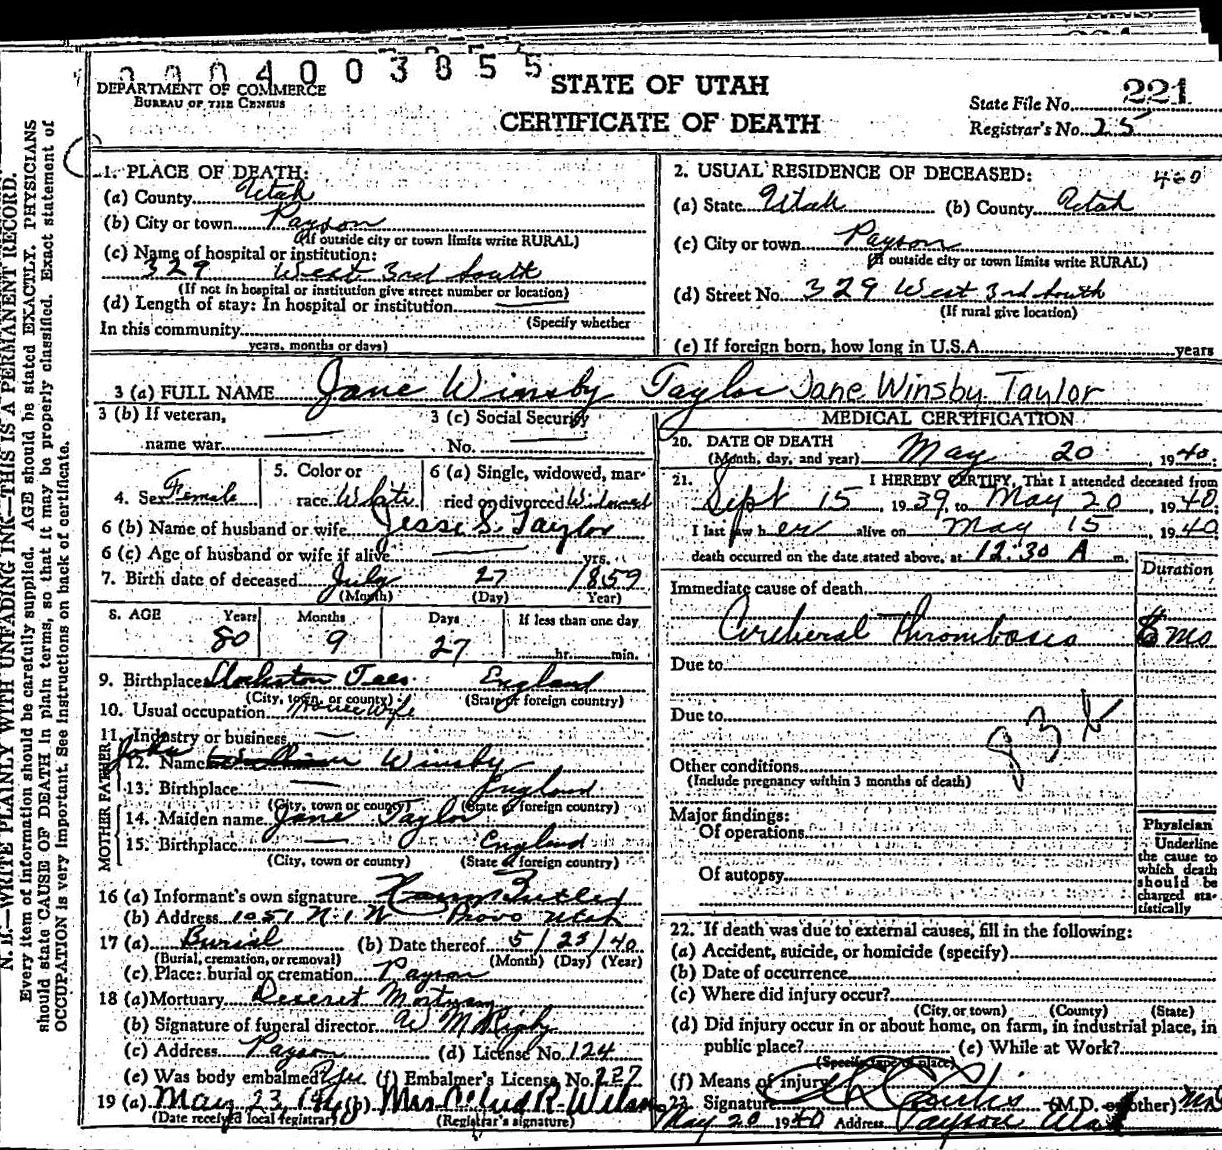 0004003855
DEPARTMENT OF COMMERCE
BUREAU OF THE CENSUS
STATE OF UTAH
CERTIFICATE OF DEATH
State File No. 221
Registrar's No. 25
N. B.—WRITE PLAINLY WITH UNFADING INK—THIS IS A PERMANENT RECORD.
Every item of information should be carefully supplied. AGE should be stated EXACTLY. PHYSICIANS
should state CAUSE OF DEATH in plain terms, so that it may be properly classified. Exact statement of
OCCUPATION is very important. See instructions on back of certificate.
1. PLACE OF DEATH:
(a) County Utah
(b) City or town Payson
(If outside city or town limits write RURAL)
(c) Name of hospital or institution:
329 West 3rd South
(If not in hospital or institution give street number or location)
(d) Length of stay: In hospital or institution
(Specify whether
In this community
years, months or days)
2. USUAL RESIDENCE OF DECEASED:
(a) State Utah (b) County Utah
(c) City or town Payson
(If outside city or town limits write RURAL)
(d) Street No. 329 West 3rd South
(If rural give location)
(e) If foreign born, how long in U.S.A. years
3 (a) FULL NAME Jane Winsby Taylor Jane Winsby Taylor
3 (b) If veteran, 3 (c) Social Security
name war No.
4. Sex Female 5. Color or race White 6 (a) Single, widowed, married or divorced Widowed
6 (b) Name of husband or wife Jesse S. Taylor
6 (c) Age of husband or wife if alive yrs.
7. Birth date of deceased July 27 1859
(Month) (Day) Year)
8. AGE Years Months Days If less than one day
80 9 27 hr. min.
9. Birthplace Stockston Tees England
(City, town, or county) (State or foreign country)
10. Usual occupation Housewife
11. Industry or business
FATHER
12. Name John Winsby
13. Birthplace England
(City, town or county) (State or foreign country)
MOTHER
14. Maiden name Jane Taylor
15. Birthplace England
(City, town or county) (State or foreign country)
16 (a) Informant's own signature Butler
(b) Address 1051 N. 1 W Provo Utah
17 (a) Burial (b) Date thereof 5/23/40
(Burial, cremation, or removal) (Month) (Day) (Year)
(c) Place: burial or cremation Payson
18 (a) Mortuary Deseret Mortuary
(b) Signature of funeral director
(c) Address Payson (d) License No. 124
(e) Was body embalmed Yes (f) Embalmer's License No. 227
19 (a) May 23 1940 (b) Mrs
(Date received local registrar) (Registrar's signature)
MEDICAL CERTIFICATION
20. DATE OF DEATH
(Month, day, and year) May 20, 1940.
21. I HEREBY CERTIFY, That I attended deceased from
Sept 15, 1939, to May 20, 1940.
I last saw h er alive on May 15, 1940
death occurred on the date stated above, at 12:30 A m.
Duration
Immediate cause of death
Cerebral Thrombosis 6 mo
Due to
Due to
83b
Other conditions
(Include pregnancy within 3 months of death)
Major findings:
Of operations
Of autopsy
Physician
Underline
the cause to
which death
should be
charged sta-
tistically
22. If death was due to external causes, fill in the following:
(a) Accident, suicide, or homicide (specify)
(b) Date of occurrence
(c) Where did injury occur?
(City, or town) (County) (State)
(d) Did injury occur in or about home, on farm, in industrial place, in
public place? (e) While at Work?
(Specify type of place)
(f) Means of injury
23. Signature Curtis (M.D. or other) MD
May 20 1940 Address Payson Utah